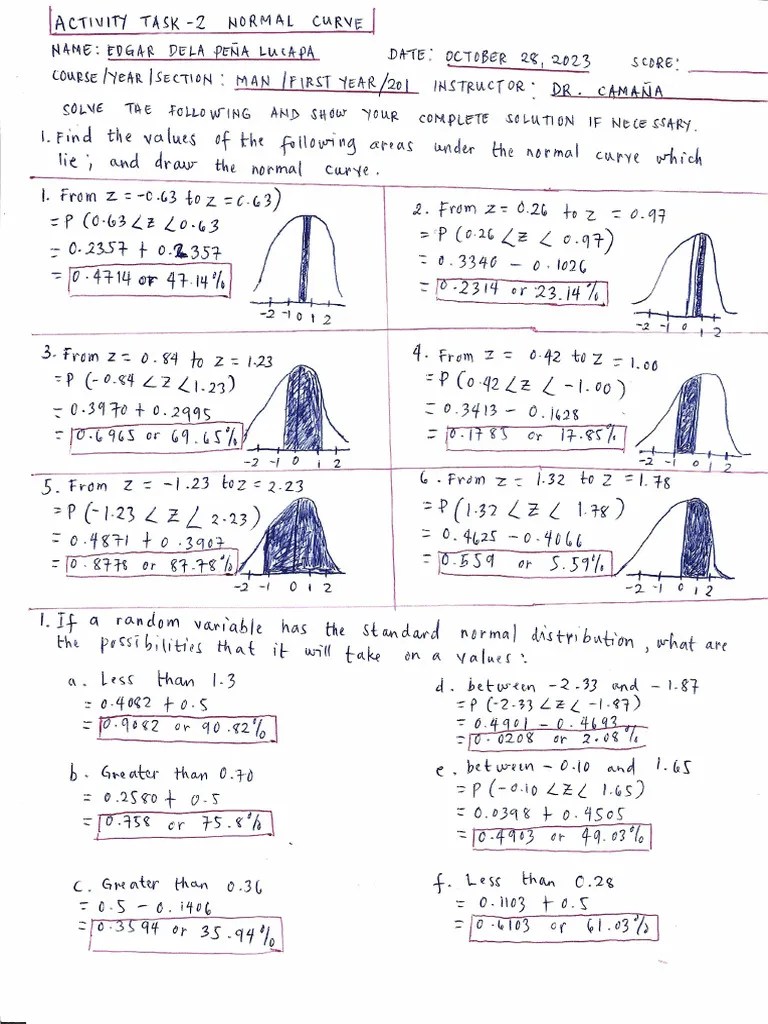 ACTIVITY TASK -2 NORMAL CURVE
NAME: EDGAR DELA PEÑA LUCAPA DATE: OCTOBER 28, 2023 SCORE:
COURSE/YEAR/SECTION: MAN /FIRST YEAR/201 INSTRUCTOR: DR. CAMAÑA
SOLVE THE FOLLOWING AND SHOW YOUR COMPLETE SOLUTION IF NECESSARY.
1. Find the values of the following areas under the normal curve which
lie; and draw the normal curve.
1. From z = -0.63 to z = 0.63)
= P (0.63 < Z < 0.63
= 0.2357 + 0.2357
= 0.4714 or 47.14%
-2 -1 0 1 2
2. From z = 0.26 to z = 0.97
= P (0.26 < Z < 0.97)
= 0.3340 - 0.1026
= 0.2314 or 23.14%
-2 -1 0 1 2
3. From z = 0.84 to z = 1.23
= P (-0.84 < Z < 1.23)
= 0.3970 + 0.2995
= 0.6965 or 69.65%
-2 -1 0 1 2
4. From z = 0.42 to z = 1.00
= P (0.42 < Z < -1.00)
= 0.3413 - 0.1628
= 0.1785 or 17.85%
-2 -1 0 1 2
5. From z = -1.23 to z = 2.23
= P (-1.23 < Z < 2.23)
= 0.4871 + 0.3907
= 0.8778 or 87.78%
-2 -1 0 1 2
6. From z = 1.32 to z = 1.78
= P (1.32 < Z < 1.78)
= 0.4625 - 0.4066
= 0.559 or 5.59%
-2 -1 0 1 2
1. If a random variable has the standard normal distribution, what are
the possibilities that it will take on a values:
a. Less than 1.3
= 0.4082 + 0.5
= 0.9082 or 90.82%
b. Greater than 0.70
= 0.2580 + 0.5
= 0.758 or 75.8%
c. Greater than 0.36
= 0.5 - 0.1406
= 0.3594 or 35.94%
d. between -2.33 and -1.87
= P (-2.33 < Z < -1.87)
= 0.4901 - 0.4693
= 0.0208 or 2.08%
e. between -0.10 and 1.65
= P (-0.10 < Z < 1.65)
= 0.0398 + 0.4505
= 0.4903 or 49.03%
f. Less than 0.28
= 0.1103 + 0.5
= 0.6103 or 61.03%